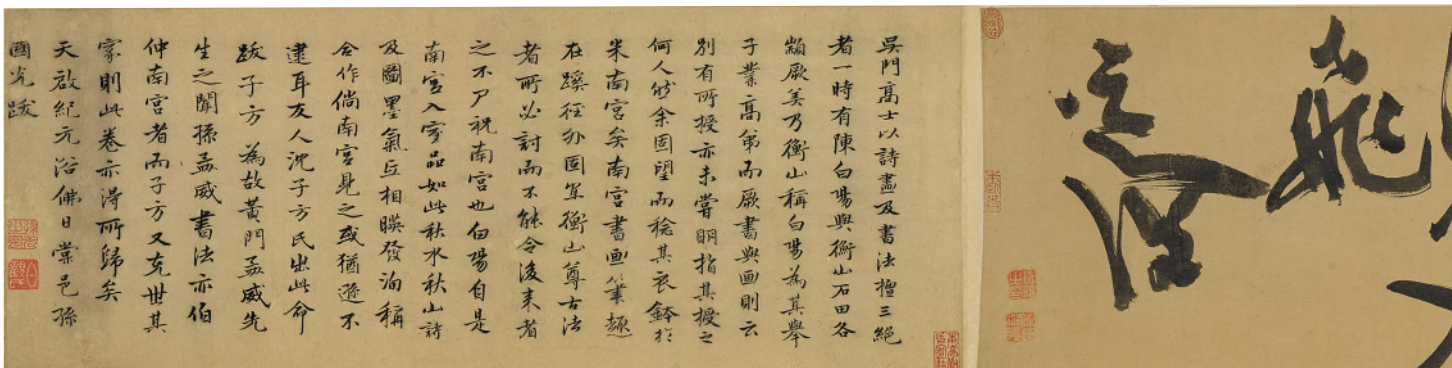 飛
吳門高士以詩畫及書法擅三絕
者一時有陳白陽與衡山石田各
顓厥美乃衡山稱白陽為其舉
子業高弟而厥書與画則云
別有所授亦未嘗明指其授之
何人然余固望而稔其衣鉢於
米南宮矣南宮書画筆趣
在蹊徑外固宜衡山尊古法
者所必討而不能令後来者
之不尸祝南宮也白陽自是
南宮入室品如此秋水秋山詩
及圖墨氣互相暎發洵稱
合作倘南宮見之或猶遜不
逮耳友人沈子方氏出此命
跋子方為故黃門孟威先
生之聞孫孟威書法亦伯
仲南宮者而子方又克世其
家則此卷亦得所歸矣
天啟紀元浴佛日棠邑孫
國光跋